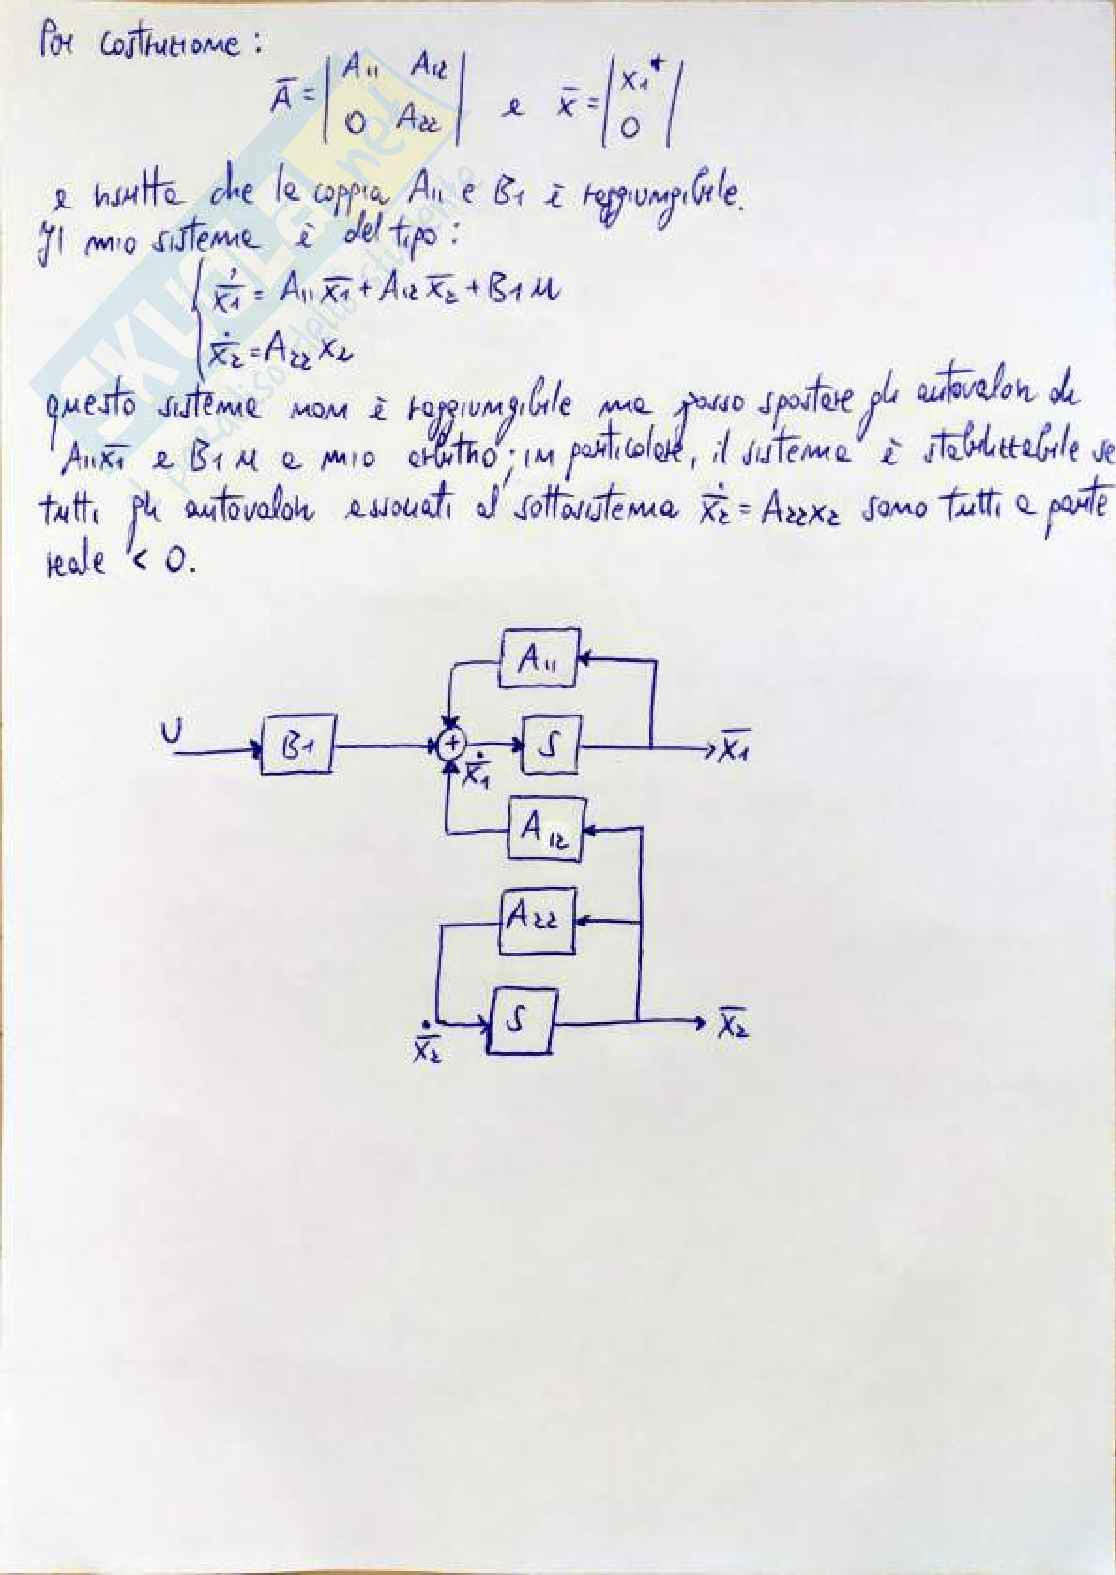 Per costruzione:
Ā = | A11 A12 | e x̄ = | x1* |
| 0 A22 | | 0 |
e risulta che la coppia A11 e B1 è raggiungibile.
Il mio sistema è del tipo:
ẋ̄1 = A11 x̄1 + A12 x̄2 + B1 u
ẋ̄2 = A22 x2
questo sistema non è raggiungibile ma posso spostare gli autovalori di
A11 x̄1 e B1 u a mio arbitrio; in particolare, il sistema è stabilizzabile se
tutti gli autovalori associati al sottosistema ẋ̄2 = A22 x2 sono tutti a parte
reale < 0.
A11
U B1 + ẋ̄1 S x̄1
A12
A22
ẋ̄2 S x̄2
SKUOLA.net